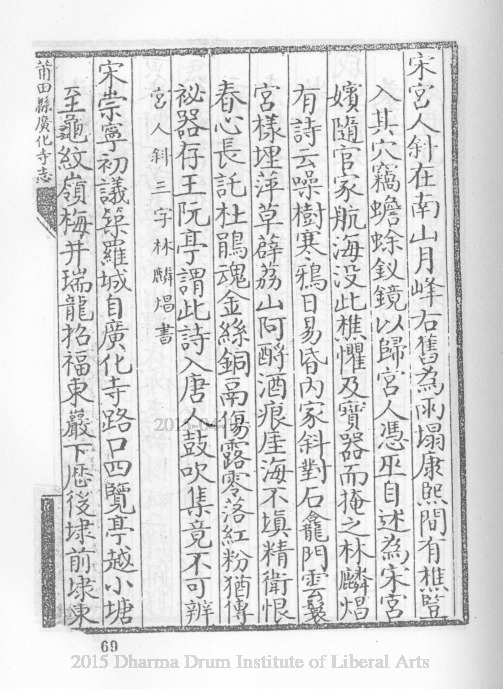 宋宮人斜在南山月峰右舊為雨塌康熙間有樵豎
入其穴竊蟾蜍釵鏡以歸宮人憑巫自述為宋宮
嬪隨官家航海没此樵懼及寳器而掩之林麟焻
有詩云噪樹寒鴉日易昏内家斜對石龕門雲鬟
宮樣埋萍草薜荔山阿酹酒痕厓海不塡精衛恨
春心長託杜鵑魂金絲銅鬲傷露零落紅粉猶傳
祕器存王阮亭謂此詩入唐人鼓吹集竟不可辨
宮人斜三字林麟焻書
宋崇寧初議築羅城自廣化寺路口四覽亭越小塘
至龜紋嶺梅井瑞龍招福東巖下厯後埭前埭東
莆田縣廣化寺志
69
2015 Dharma Drum Institute of Liberal Arts